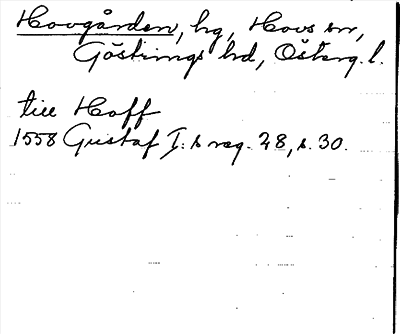 Hovgården, hg, Hovs sn,
Göstrings hd, Österg. l.
till Hoff
1558 Gustaf I:s reg. 28, s. 30.